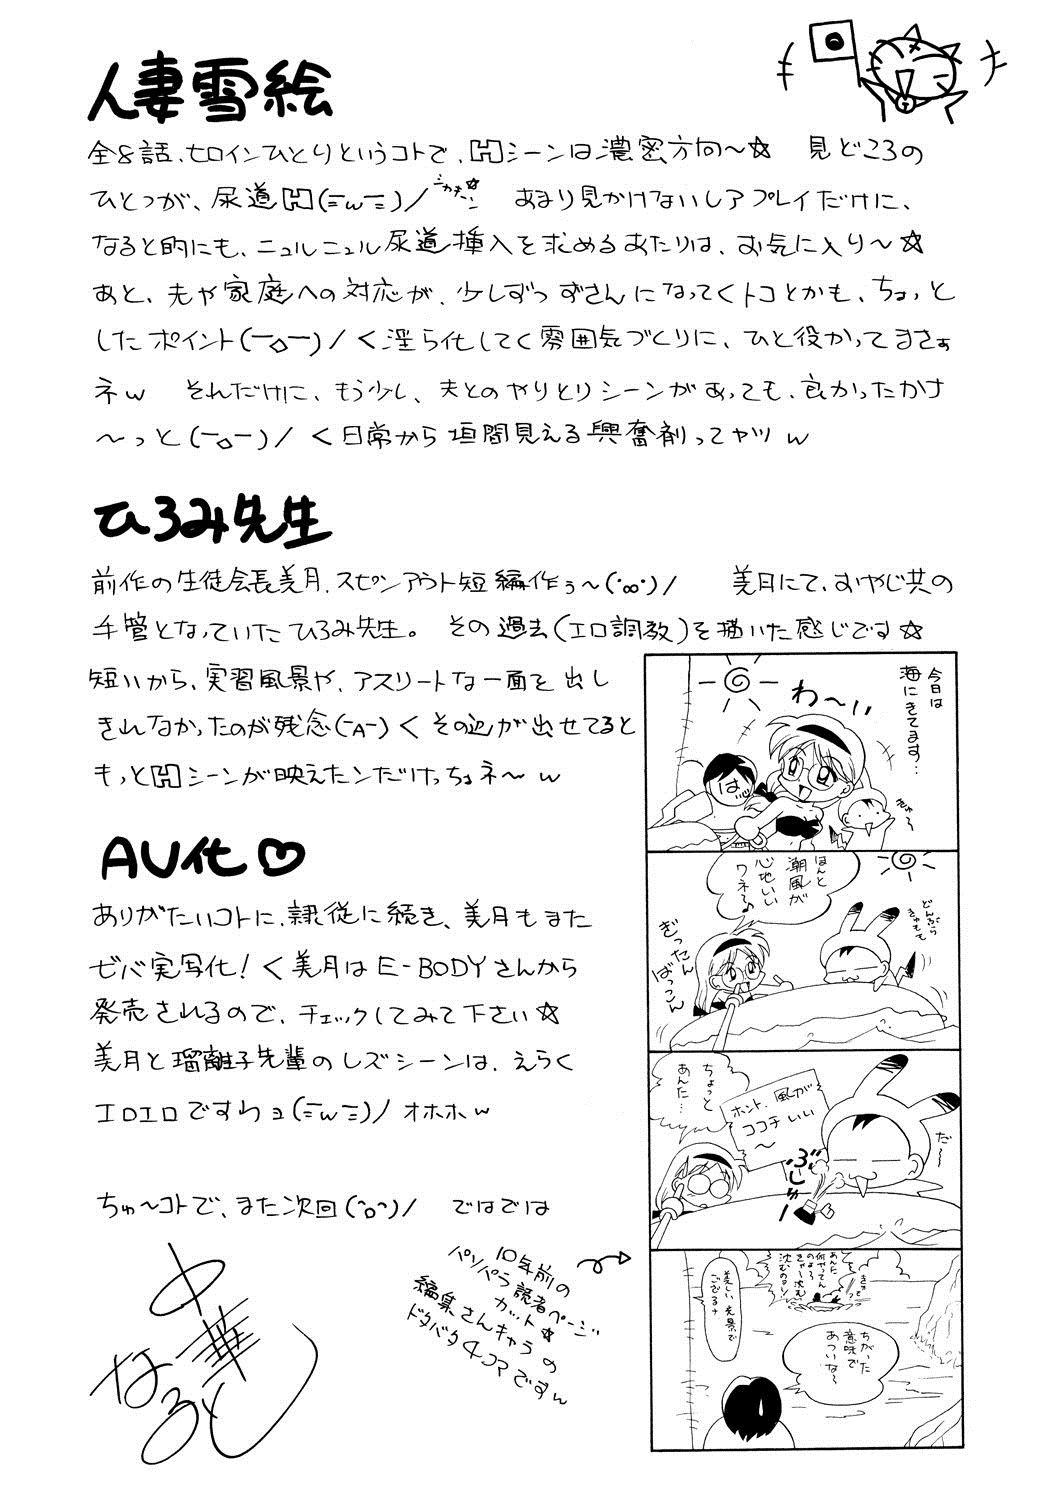 人妻雪絵
全8話、ヒロインひとりというコトで、Hシーンは濃密方向～☆ 見どころの
ひとつが、尿道H(ﾆwﾆ)/ あまり見かけないレアプレイだけに、
なると的にも、ニュルニュル尿道挿入を求めるあたりは、お気に入り～☆
あと、夫や家庭への対応が、少しずつずさんになってくトコとかも、ちょっと
したポイント(￣o￣)/ く淫ら化してく雰囲気づくりに、ひと役かってまさぁ
ネw それだけに、もう少し、夫とのやりとりシーンがあっても、良かったかな
～っと(￣o￣)/ く日常から垣間見える興奮剤ってヤツw
ひろみ先生
前作の生徒会長美月、スピンアウト短編作ぅ～(・∞・)/ 美月にて、おやじ共の
手管となっていたひろみ先生。その過去(エロ調教)を描いた感じです☆
短いから、実習風景や、アスリートな一面を出し
きれなかったのが残念(-A-) くその辺が出せてると
もっとHシーンが映えたンだけっちょネ～w
AV化♡
ありがたいコトに、隷従に続き、美月もまた
ゼバ実写化! く美月はE-BODYさんから
発売されるので、チェックしてみて下さい☆
美月と瑠離子先輩のレズシーンは、えらく
エロエロですわョ(ﾆwﾆ)/ オホホw
ちゅ～コトで、また次回(^o^)/ ではでは
中華なると
10年前の
パソパラ読者ページ
カット☆
編集さんキャラの
ドタバタ4コマですw
今日は
海にきてます…
わ～い
は
きゅ～
ほんと
潮風が
心地いい
ワネ～♪
どんぶら
きゅもも
ぎったん
ばっこん
ちょっと
あんた…
ホント、風が
ココチいい
～
だ～
ぶしゅー!
あんた
何やってん
のよ～
きゃー沈む
沈むのョン
美しい光景で
ござるナ
ちがった
意味で
あついな～